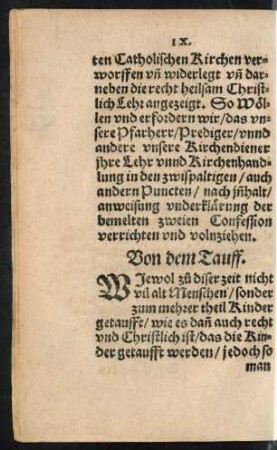 IX.
ten Catholischen Kirchen ver-
worffen vñ widerlegt vñ dar-
neben die recht heilsam Christ-
lich Lehr angezeigt. So Wöl-
len vnd erfordern wir/das vn-
sere Pfarherr/Prediger/vnnd
andere vnsere Kirchendiener
jhre Lehr vnnd Kirchenhand-
lung in den zwispaltigen/auch
andern Puncten/nach jnhalt/
anweisung vnderklärung der
bemelten zweien Confession
verrichten vnd volnziehen.
Von dem Tauff.
WJewol zů diser zeit nicht
vil alt Menschen/sonder
zum mehrer theil Kinder
getaufft/wie es dañ auch recht
vnd Christlich ist/das die Kin-
der getaufft werden/jedoch so
man